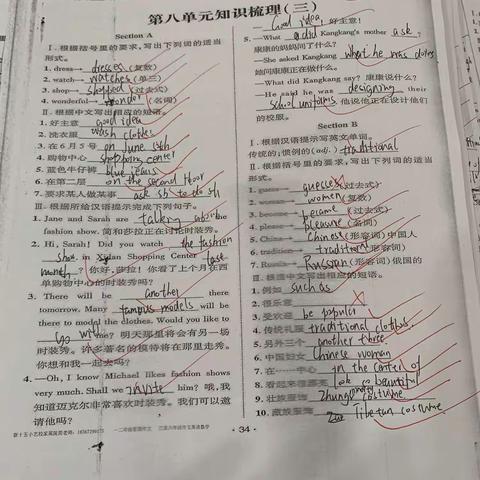 第八单元知识梳理(三)
Section A
I. 根据括号里的要求,写出下列词的适当
形式。
1. dress→ dresses (复数)
2. watch→ watches (单三)
3. shop→ shopped (过去式)
4. wonderful→ wonder (名词)
II. 根据中文写出相应的短语。
1. 好主意 good idea
2. 洗衣服 wash clothes
3. 在6月5号 on June 5th
4. 购物中心 shopping center
5. 蓝色牛仔裤 blue jeans
6. 在第二层 on the second floor
7. 要求某人做某事 ask sb to do sth
III. 根据所给汉语提示完成下列句子。
1. Jane and Sarah are talking about the
fashion show. 简和莎拉正在讨论时装秀。
2. Hi, Sarah! Did you watch the fashion
show in Xidan Shopping Center last
month? 你好,莎拉!你看了上个月在西
单购物中心的时装秀吗?
3. There will be another there
tomorrow. Many famous models will be
there to model the clothes. Would you like to
go with me? 明天那里将会有另一场
时装秀。许多著名的模特将在那里走秀。
你想和我一起去吗?
4. —Oh, I know Michael likes fashion shows
very much. Shall we invite him? 哦,我
知道迈克尔非常喜欢时装秀。我们可以邀
请他吗?
—Good idea! 好主意!
5. —What did Kangkang's mother ask?
康康的妈妈问了什么?
—She asked Kangkang what he was doing
她问康康正在做什么。
—What did Kangkang say? 康康说什么?
—He said he was designing their
school uniforms. 他说他正在设计他们
的校服。
Section B
I. 根据汉语提示写英文单词。
传统的;惯例的(adj.) traditional
II. 根据括号里的要求,写出下列词的适当
形式。
1. guess→ guesses (过去式)
2. woman→ women (复数)
3. become→ became (过去式)
4. please→ pleasure (名词)
5. China→ Chinese (形容词)中国人
6. tradition→ traditional (形容词)
7. Russia→ Russian (形容词)俄国的
III. 根据中文写出相应的短语。
1. 例如 such as
2. 很乐意
3. 受欢迎 be popular
4. 传统礼服 traditional clothes
5. 另外三个 another three
6. 中国妇女 Chinese woman
7. 在……中心 in the center of
8. 看起来很漂亮 look so beautiful
9. 壮族服饰 costume
10. 藏族服饰 Tibetan costume
· 34 ·